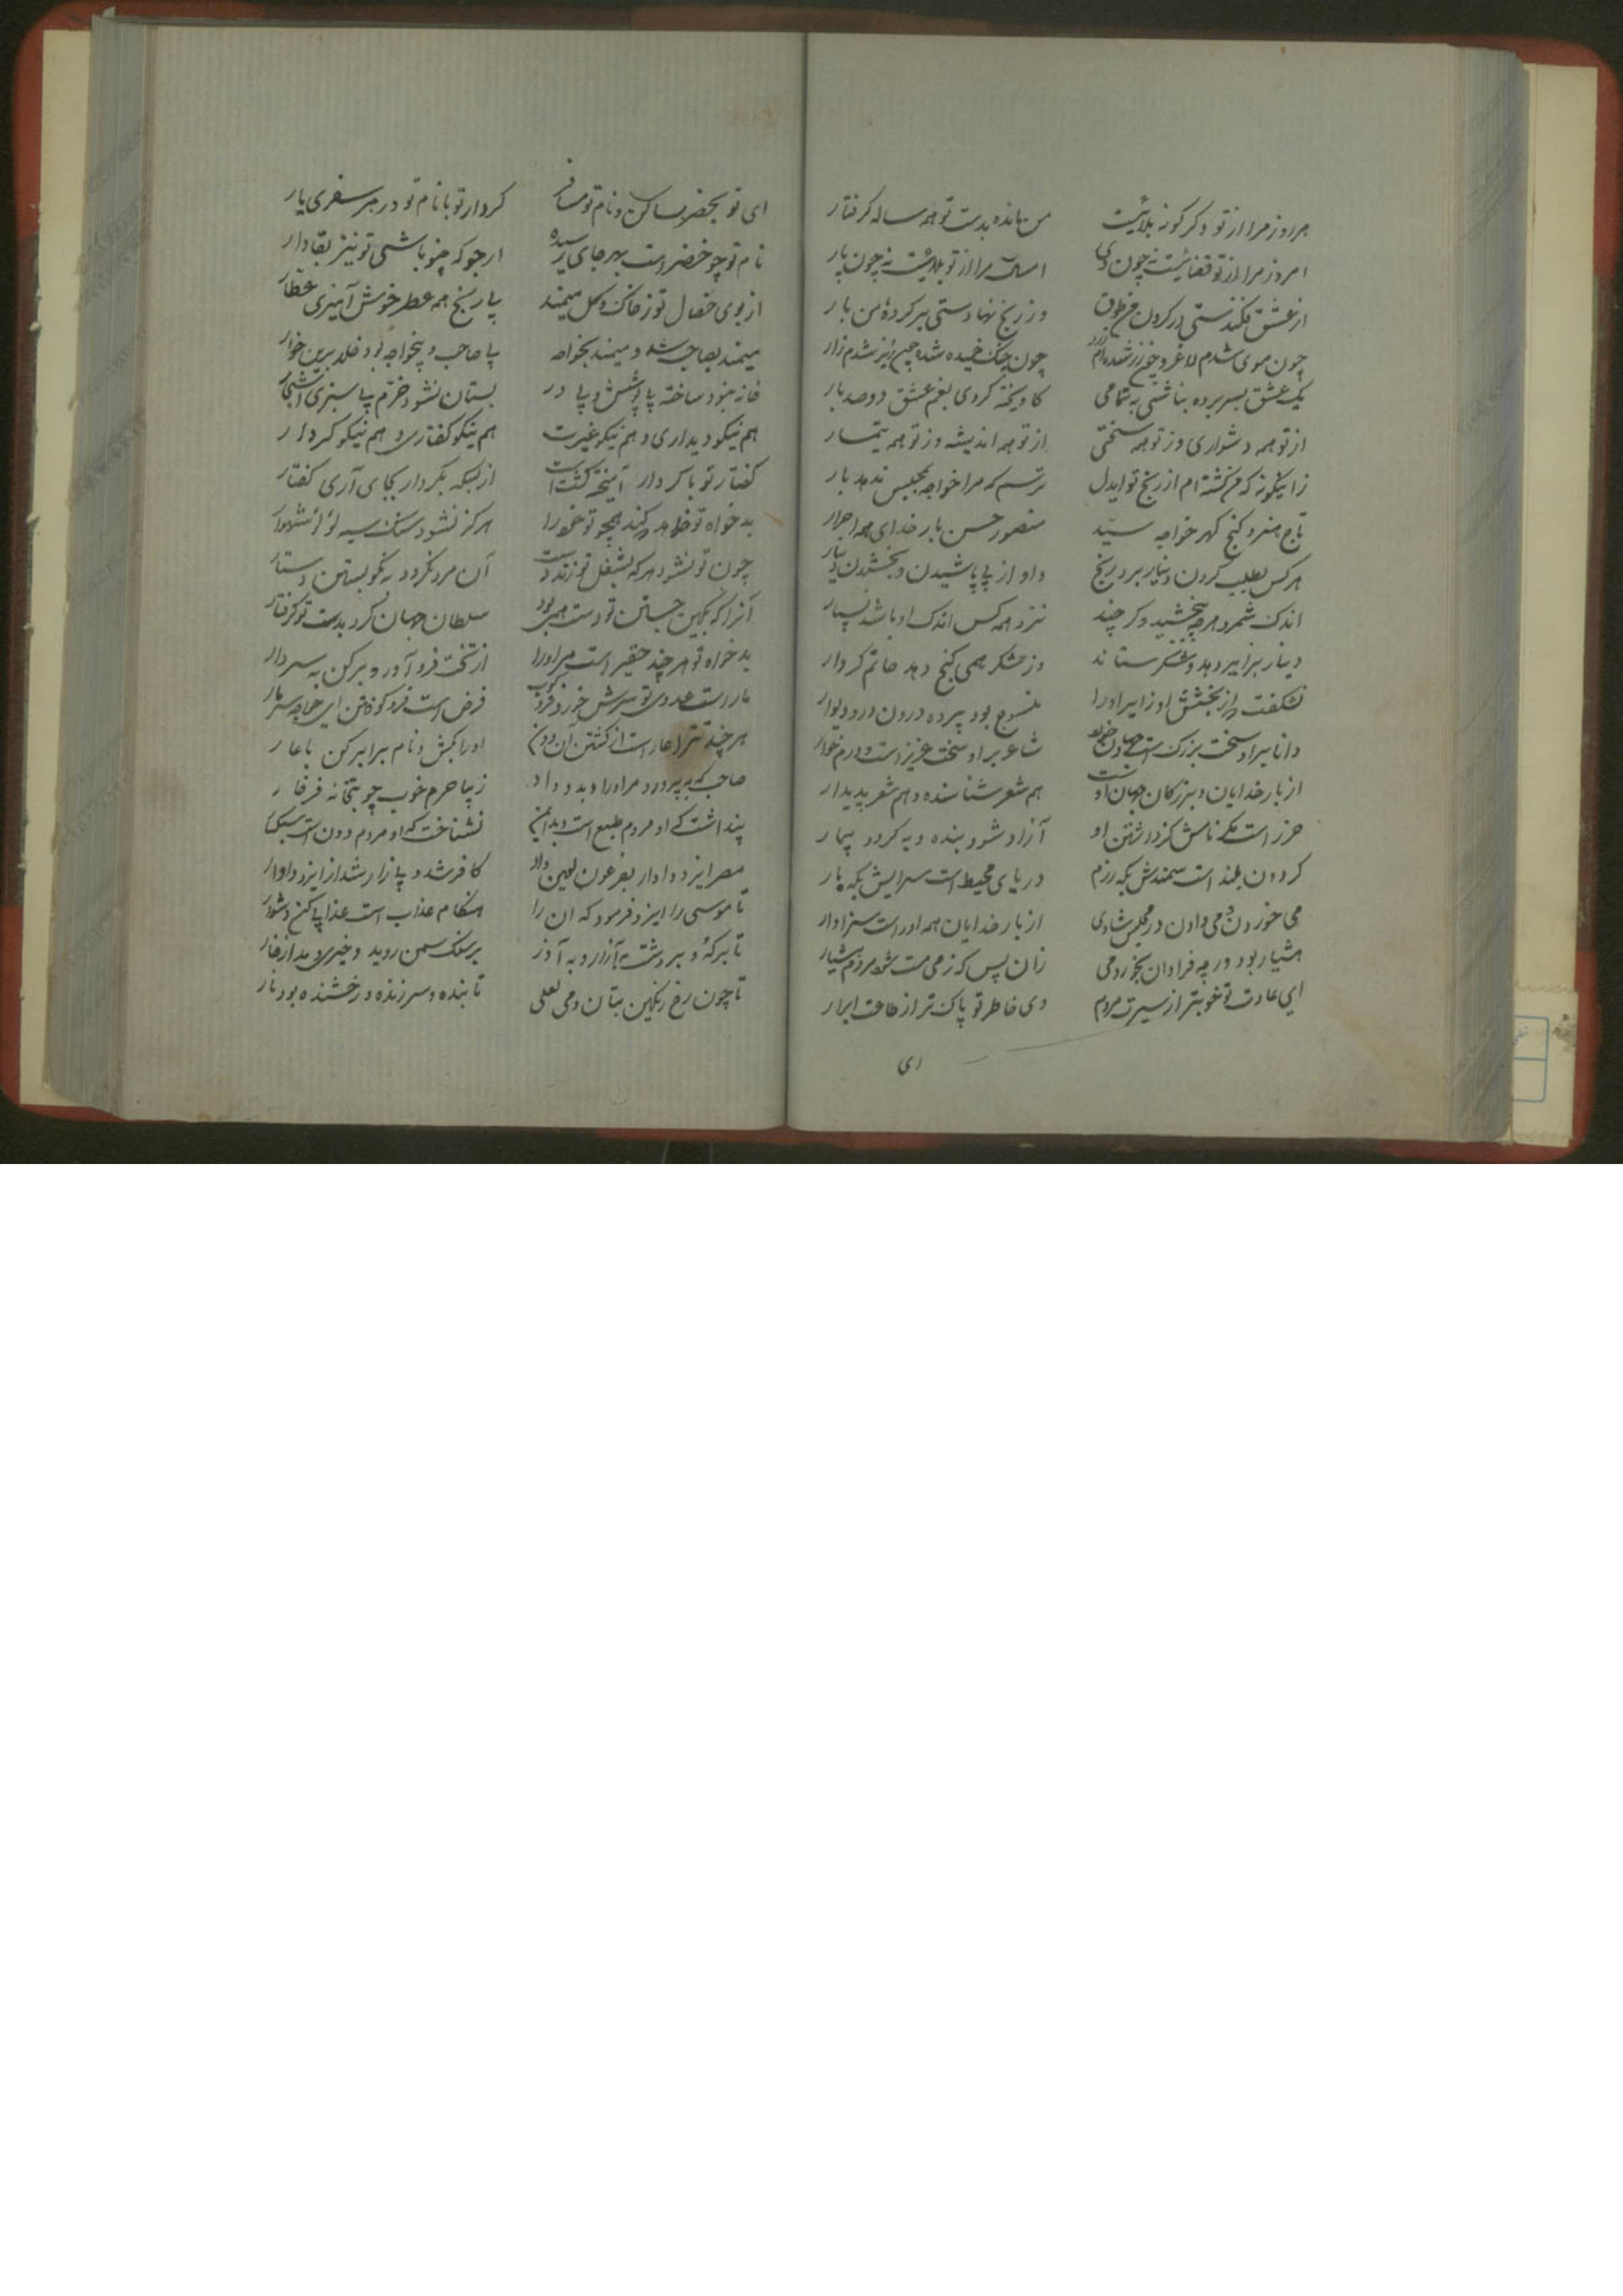 هر روز مرا از تو دگرگونه بلائیست
من مانده بدست تو همه ساله گرفتار
امروز مرا از تو قضائیست نه چون دی
امسال مرا از تو بلائیست نه چون پار
از عشق فکندستی در گردن من طوق
وز رنج نهادستی بر گردهٔ من بار
چون موی شدم لاغر و چون زر شده‌ام زرد
چون چنگ خمیده شده چون زیر شدم زار
یک عشق بسر برده نباشی به تمامی
کاویخته کردی بغم عشق دوصد بار
از تو همه دشواری وز تو همه سختی
از تو همه اندیشه وز تو همه تیمار
زاینگونه که من گشته‌ام از رنج تو ایدل
ترسم که مرا خواجه بمجلس ندهد بار
تاج هنر و گنج گهر خواجه سید
منصور حسن بار خدای همه احرار
هر کس بطلب کردن دینار برد رنج
و او از پی پاشیدن و بخشیدن دینار
اندک شمرد هر چه ببخشید و گر چند
نزد همه کس اندک او باشد بسیار
دینار بزایر دهد و شکر ستاند
وز شکر همی گنج دهد حاتم کردار
نشکفت از بخشش او زایر او را
منسوج بود پرده درون در و دیوار
دانا بر او سخت بزرگ است
شاعر بر او سخت عزیز است و درم خوار
از بار خدایان و بزرگان جهان اوست
هم شعر شناسنده و هم شعر پدیدار
حرز است مگر نامش کز داشتن او
آزاد شود بنده و به گردد بیمار
گردون بلند است سمندش بگه رزم
دریای محیط است سرایش بگه بار
می خوردن و می دادن در مجلس شادی
از بار خدایان همه او راست سزاوار
هشیار بود ور چه فراوان بخورد می
زان پس که ز می مست شود مردم هشیار
ای عادت تو خوبتر از سیرت مردم
وی خاطر تو پاک تر از طاعت ابرار
ای
ای تو بحضر ساکن و نام تو مسافر
کردار تو با نام تو در هر سفری یار
نام تو چو خضر است بهر جای رسیده
ارجو که چنو باشی تو نیز بقادار
از بوی خصال تو ز خاک و گل میمند
با رنج همه عطر خوش آمیزی عطار
میمند بصاحب شد و میمند بخواجه
با صاحب و با خواجه بود خلد برین خوار
خانه نبود ساخته با پوشش و با در
بستان نشود خرم با سبزی و اشجار
هم نیکو دیداری و هم نیکو غیرت
هم نیکو گفتاری و هم نیکو کردار
گفتار تو با کردار آمیخته گشتست
از بسکه بکردار بجای آری گفتار
بدخواه تو خواهد که کند همچو تو خود را
هرگز نشود سنگ سیه لؤلؤ شهوار
چون تو نشود هر که بشغل تو زند دست
آن مرد نگردد که نکو بستن دستار
آنرا که بکین جستن تو دست همی برد
سلطان جهان کرد بدست تو گرفتار
بدخواه تو هر چند حقیر است مر او را
از تخت فرود آور و بر کن به سر دار
مار است عدوی تو سرش خورد فرو کوب
فرض است فرو کوفتن ای خواجه سر مار
هر چند ترا عار است از کشتن آن دون
او را بکش و نام برابر کن با عار
صاحب که بپرورد مر او را و بدو داد
زیبا حرم خوب چو بتخانه فرخار
پنداشت که او مردم طبع است و بدانین
نشناخت که او مردم دون است سبکسار
مصر ایزد دادار بفرعون لعین داد
کافر شد و بیزار شد از ایزد دادار
تا موسی را ایزد فرمود که آن را
هنگام عذاب است عذابی کن دشوار
تا بر که و بر دشت به آزار و به آذر
بر سنگ سمن روید و خیری دمد از خار
تا چون رخ رنگین بتان و می لعلی
تابنده و سرزنده و رخشنده بود نار